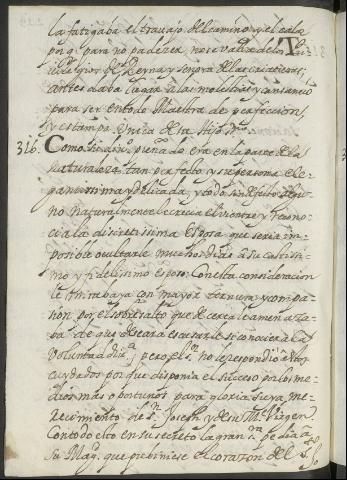 la fatigaba el travajo del camino y el calor
porq. para no padezer no se valia de los Pri
vilegios de Reyna y señora de las criaturas;
antes daba lugar a las molestias y cansancio
para ser en todo Maestra de perfeccion,
y estampa unica de su Hijo
316. Como su divino preñado era en la parte de la
naturaleza tan perfecto y su persona ele-
gantissima y delicada, y todo sin defecto algu-
no naturalmente le crecia el vientre y recono-
cia la discretissima Esposa que seria im-
posible ocultarle muchos dias a su castissi-
mo y fidelissimo esposo. Con esta consideracion
le miraba ya con mayor ternura y compa-
sion por el sobresalto que de cerca le amenaza-
ba de que deseara escusarle si conociera la
voluntad divina; pero el Sr. no le respondio a estos
cuydados porque disponia el suceso por los me-
dios mas oportunos para gloria suya me-
recimiento de Sn. Joseph y de su Me. Virgen
Con todo esto en su secreto la gran Sra. pedia a
su Magd. que previniese el corazon del Sto